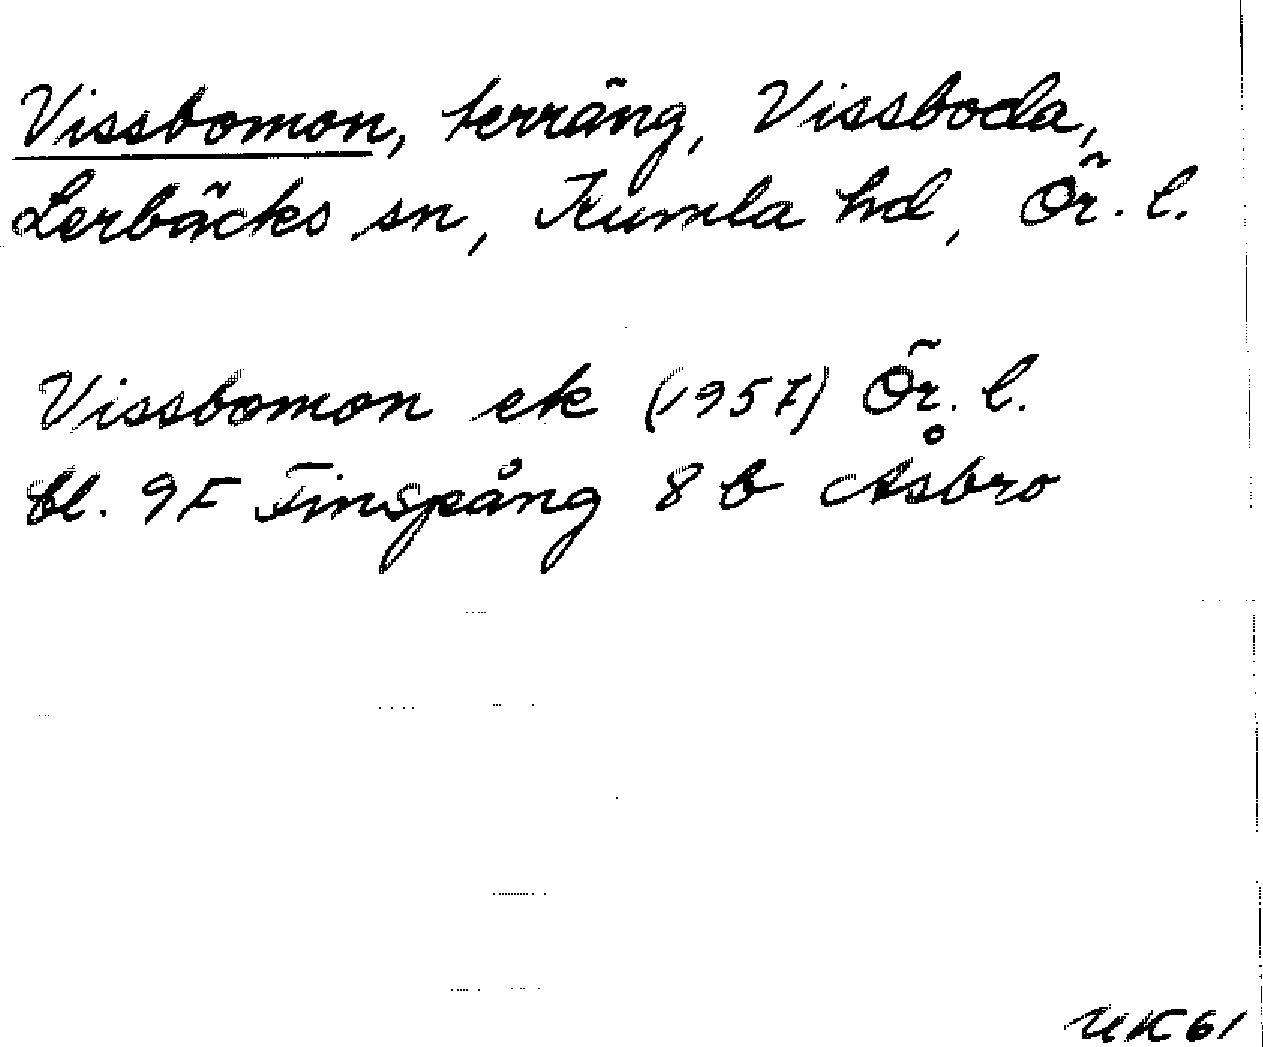 Vissbomon, terräng, Vissboda,
Lerbäcks sn, Kumla hd, Ör. l.
Vissbomon ek (1957) Ör. l.
bl. 9F Finspång 8 b Åsbro
UK 61